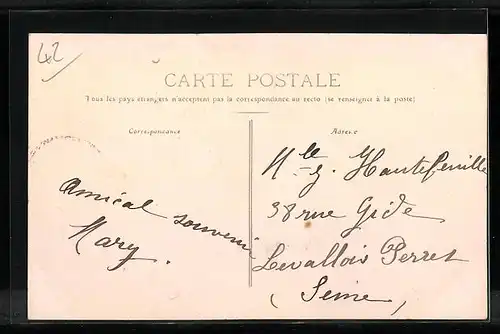 42
CARTE POSTALE
Tous les pays étrangers n'acceptent pas la correspondance au recto (se renseigner à la poste)
Correspondance
Adresse
Amical souvenir
Mary.
Mlle G. Hautefeuille
38 rue Gide
Levallois Perret
(Seine)